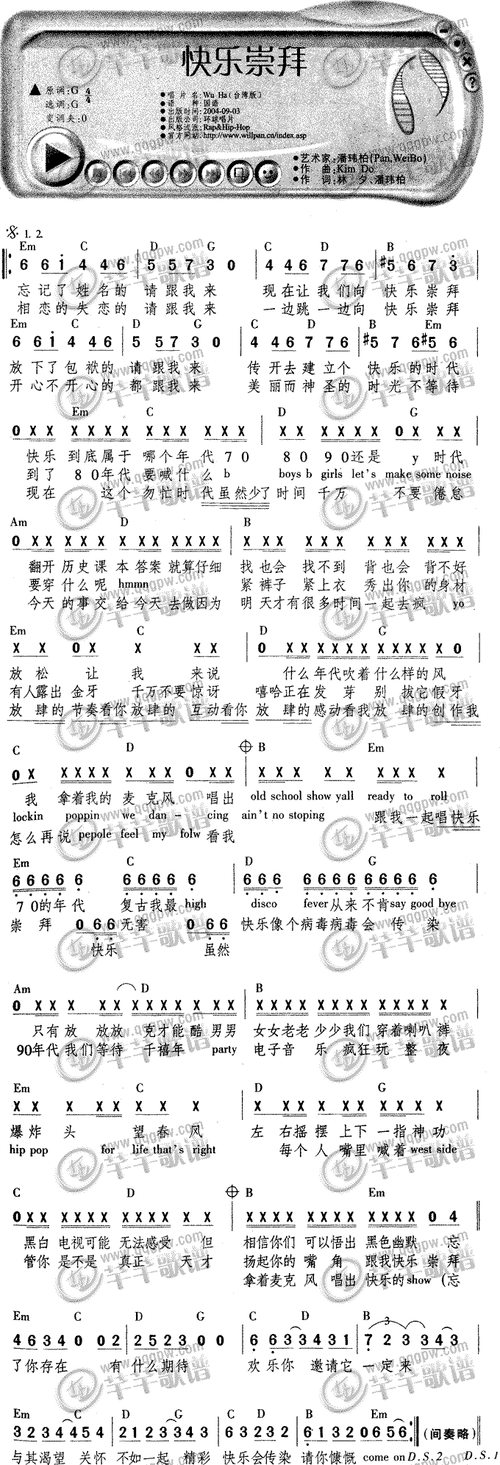 快乐崇拜
原调:G 4/4
选调:G
变调夹:0
唱 片 名:Wu Ha(台湾版)
语 种:国语
出版时间:2004-09-03
出版公司:环球唱片
风格流派:Rap&Hip-Hop
官方网站:http://www.willpan.cn/index.asp
艺术家:潘玮柏(Pan,WeiBo)
作 曲:Kim Do.
作 词:林 夕、潘玮柏
1. 2.
Em C D G C D B
6 6 i 4 4 6 5 5 7 3 0 4 4 6 7 7 6 #5 6 7 3
忘记了姓名的 请跟我来 现在让我们向 快乐崇拜
相恋的失恋的 请跟我来 一边跳一边向 快乐崇拜
Em C D G C D B
6 6 i 4 4 6 5 5 7 3 0 4 4 6 7 7 6 #5 7 6 #5 6
放下了包袱的 请跟我来 传开去建立个 快乐的时代
开心不开心的 都跟我来 美丽而神圣的 时光不等待
Em C D G
0 X X X X X X X X X X X X X X X X X 0 X X X
快乐 到底属于 哪个年 代 70 80 90还是 y 时代
到了 80年代 要喊什 么 b boys b girls let's make some noise
现在 这个 勿忙时 代虽然少了 时间 千万 不要 倦怠
Am D B
翻开 历史 课 本答案 就算仔细 找也会 找不到 背也会 背不好
要穿 什么 呢 hmmn 紧裤子 紧上衣 秀出你 的身材
今天的事交 给今天 去做因为 明天才有很多时间一起去疯 yo
Em C D G
放 松 让 我 来说 什么年代吹着什么样的风
有人露出 金牙 千万不要惊讶 嘻哈正在发 芽 别 拔它 假牙
放 肆的 节奏看你 放肆的 互动看你 放 肆的 感动看我 放 肆的创作 我
C D B Em
我 拿着我的 麦 克风 唱出 old school show yall ready to roll
lockin poppin we dan-cing ain't no stoping 跟我一起唱快乐
怎么再说 pepole feel my folw 看我
Em C D G
6 6 6 6 6 6 6 6 6 6 6 6 6 6 6 6 6 6 6 6 6 6
70的年代 复古我最high disco fever从来不肯say good bye
崇 拜 0 6 6 无害 0 6 6 快乐像个病毒病毒会 传 染
快乐 虽然
Am D B
只有 放 放放 克才能 酷 男男 女女老老 少少我们 穿着喇叭 裤
90年代 我们等待 千禧年 party 电子音 乐 疯狂 玩 整 夜
Em C D G
爆 炸 头 望 春 风 左 右 摇 摆 上下 一指 神功
hip pop for life that's right 每个人 嘴里 喊着west side
C D B Em
黑白 电视可能 无法感受 但 相信你们 可以悟出 黑色幽默 忘
管你 是不是 真正 天才 扬起你的 嘴 角 跟我快乐 崇拜
拿着麦克 风 唱出 快乐的show (忘
Em C D G C D B
4 6 3 4 0 0 2 2 5 2 3 0 0 6 6 3 3 4 3 1 7 2 3 3 4 3
了你存在 有 什么期待 欢乐你 邀请它 一定来
Em C D G C D B
3 2 3 4 4 5 4 2 1 2 3 3 4 3 6 1 3 2 0 6 5 6 (间奏略)
与其渴望 关怀 不如一起 精彩 快乐会传染 请你慷慨 come on D.S.2 D.S.1